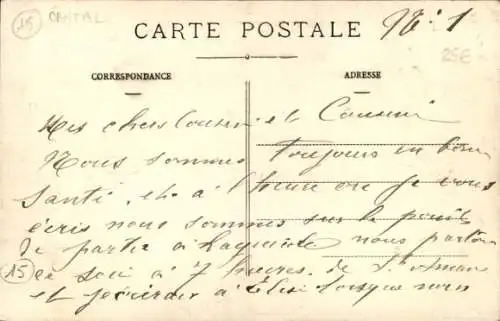 15 CANTAL
CARTE POSTALE
N°: 1
25€
CORRESPONDANCE ADRESSE
Mes chers Cousin et Cousine
Nous sommes toujours en bonne
santé et à l'heure ou je vous
écris nous sommes sur le point
de partir à nous partons
15
ce soir à 7 heures de St Amans
et j'écrirai à Élise lorsque nous